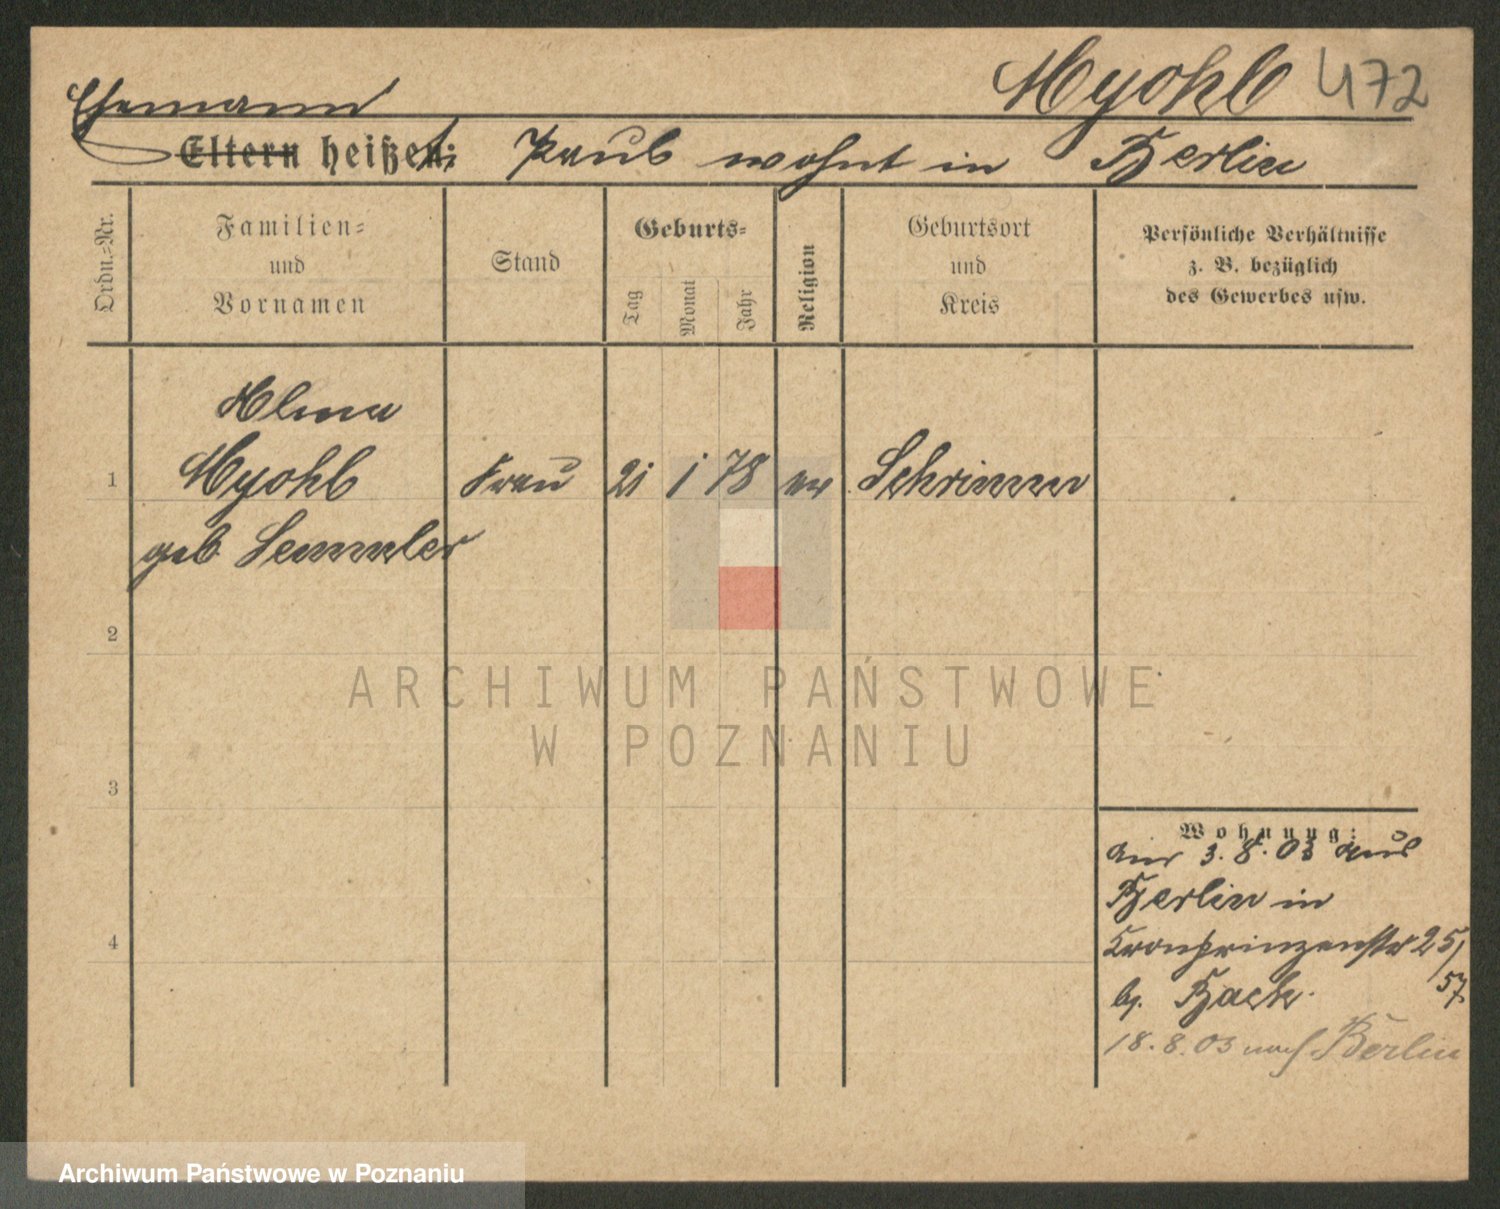 Myohl 472
Ehemann
Eltern heißen: Paul wohnt in Berlin
Ordn.-Nr.
Familien-
und
Vornamen
Stand
Geburts-
Tag
Monat
Jahr
Religion
Geburtsort
und
Kreis
Persönliche Verhältnisse
z. B. bezüglich
des Gewerbes usw.
Alma
1 Myohl Frau 21 1 78 ev Schrimm
geb. Semmler
2
ARCHIWUM PAŃSTWOWE
W POZNANIU
3
Wohnung:
am 3.8.03 aus
Berlin in
4 Kronprinzenstr 25/
b. Hack. 57.
18.8.03 nach Berlin
Archiwum Państwowe w Poznaniu